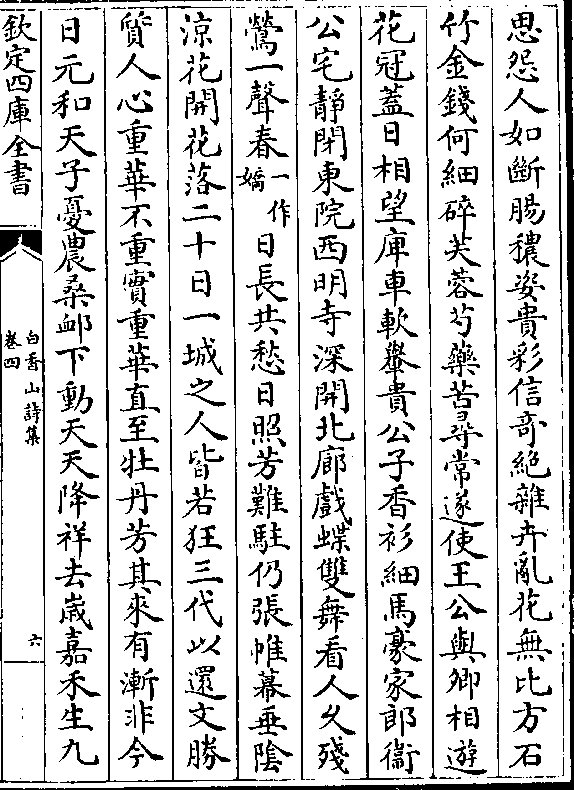 思怨人如斷腸穠姿貴彩信奇絶雜卉亂花無比方石
竹金錢何細碎芙蓉芍藥苦尋常遂使王公與卿相遊
花冠蓋日相望庳車軟轝貴公子香衫細馬豪家郎衞
公宅靜閉東院西明寺深開北廊戲蝶雙舞看人久殘
鶯一聲春一作嬌日長共愁日照芳難駐仍張帷幕垂陰
涼花開花落二十日一城之人皆若狂三代以還文勝
質人心重華不重實重華直至牡丹芳其來有漸非今
日元和天子憂農桑卹下動天天降祥去嵗嘉禾生九
欽定四庫全書
白香山詩集
卷四
六